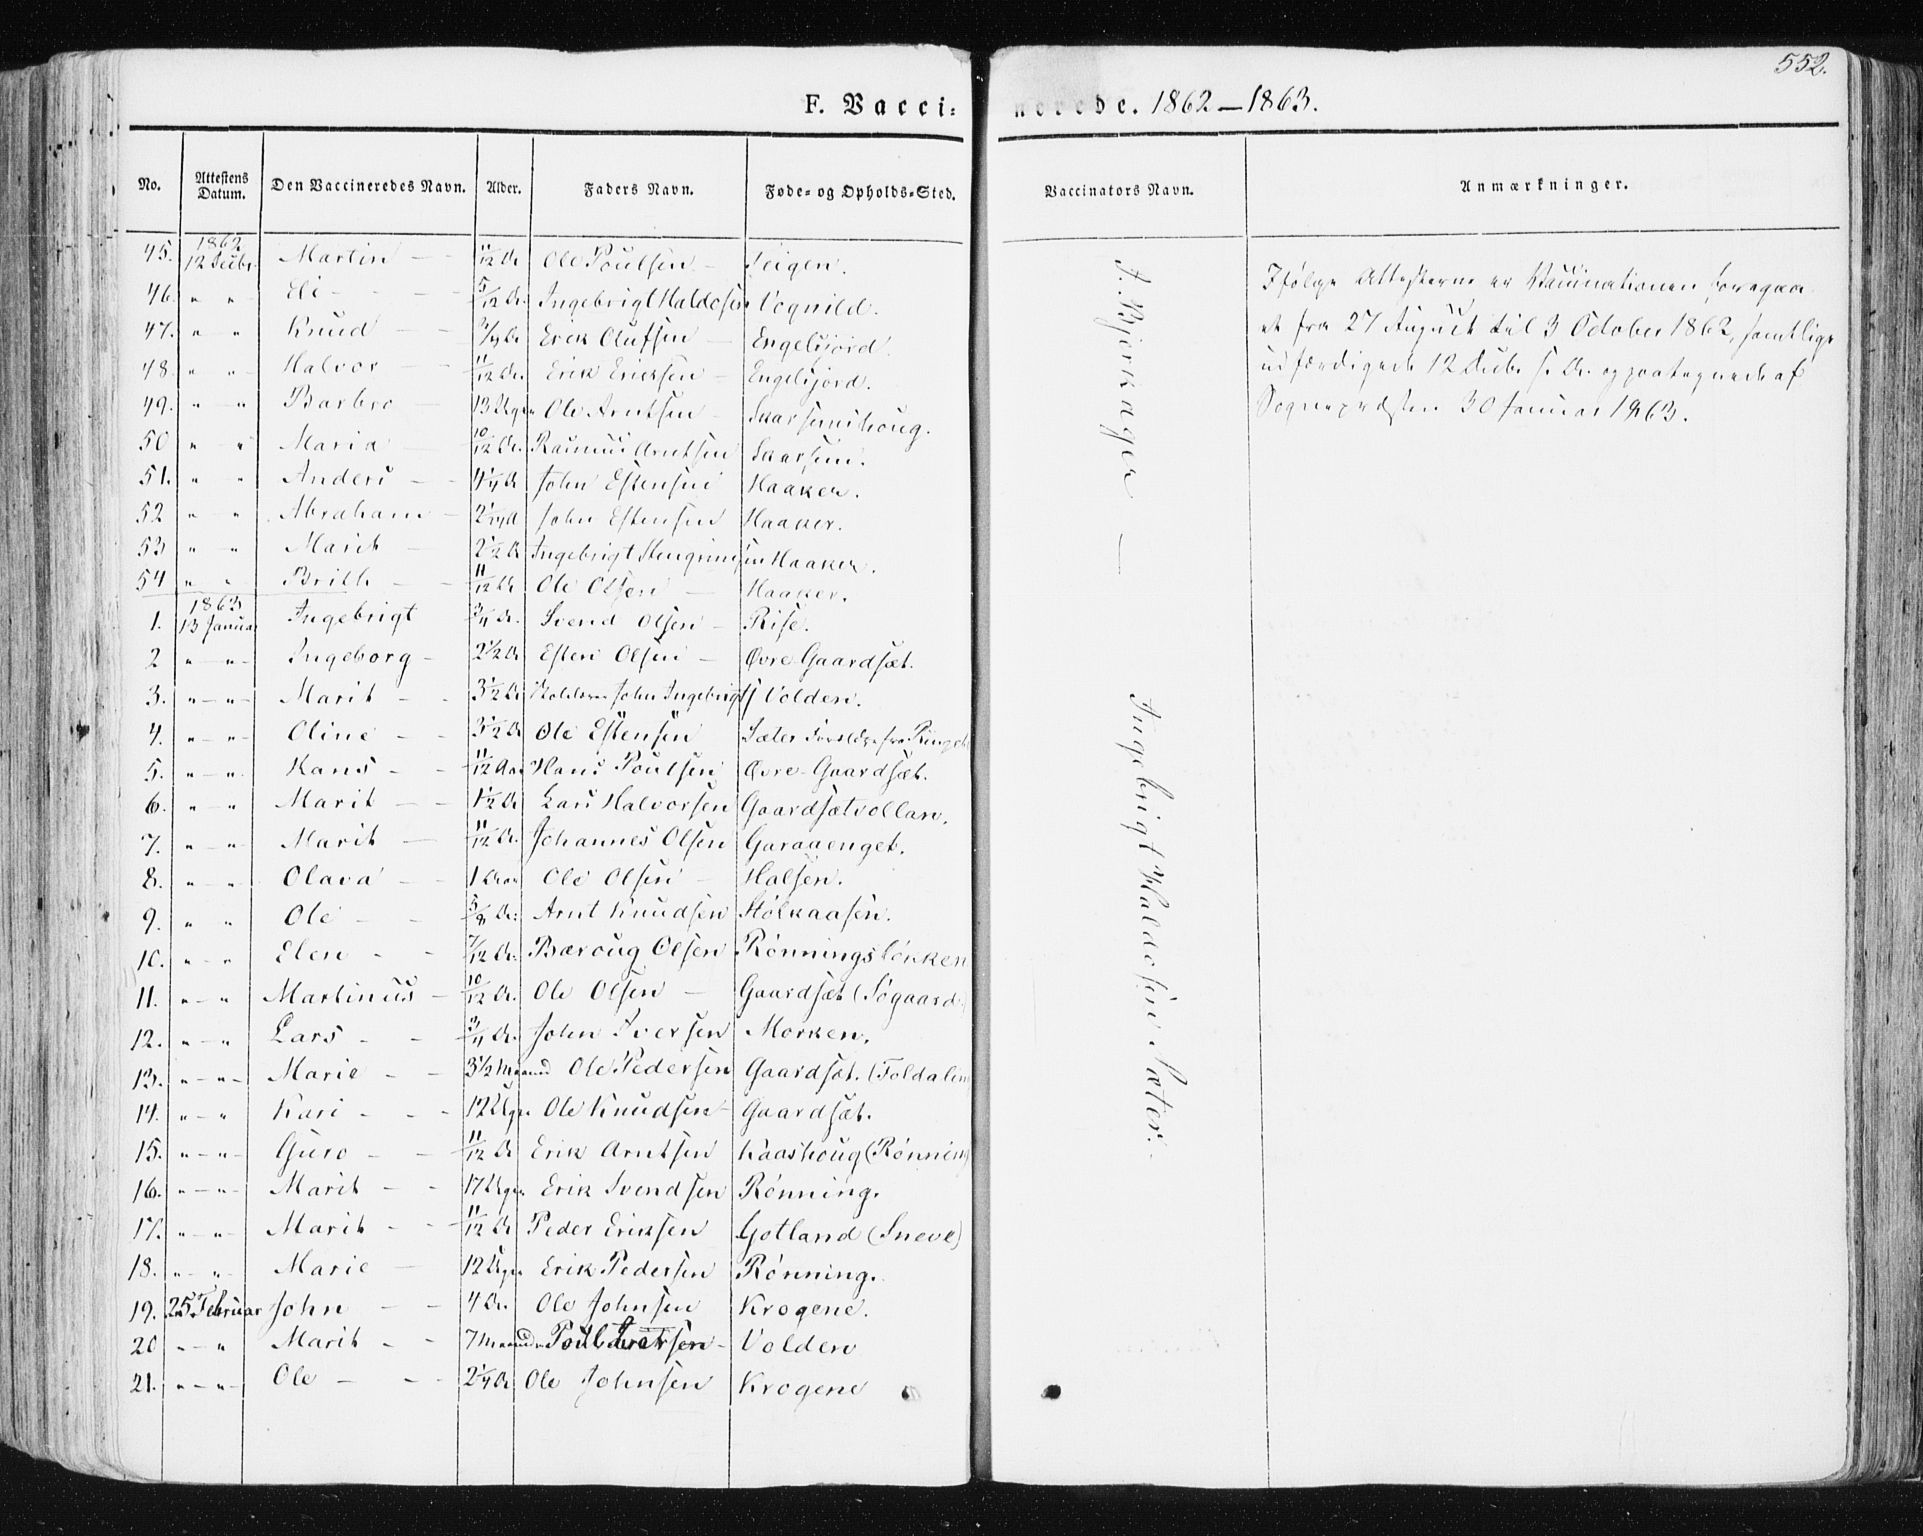 552.
F. Vaccinerede. 1862–1863.
No. Attestens Datum. Den Vaccineredes Navn. Alder. Faders Navn. Føde- og Opholds-Sted. Vaccinators Navn. Anmærkninger.
1862
45. 12 Decbr. Martin 11/12 Ar Ole Poulsen Teigen.
46. " " Eli 5/12 Ar. Ingebrigt Haldosen Vognild.
47. " " Knud 3/4 Ar Erik Olufsen Engelsjord.
48. " " Halvor 11/12 Ar. Erik Ericksen Engelsjord.
49. " " Barbro 13 Uger Ole Arntsen
50 " " Maria 10/12 Ar. Rasmus Arntsen
51. " " Anders 4 1/4 Ar John Estensen Haaker.
52 " " Abraham 2 1/4 Ar John Estensen Haaker.
53 " " Marit 2 1/2 Ar Ingebrigt Stengrimsen Haaker.
54 " " Brith 11/12 Ar Ole Olsen Haaker.
1863
1. 13 Januar Ingebrigt 3/4 Ar. Svend Olsen Rise.
2 " " Ingeborg 2 1/2 Ar Esten Olsen Øvre Gaardsæt.
3. " " Marit 3 1/2 Ar John Ingebrigts Volden.
4. " " Oline 3 1/2 Ar Ole Estensen Sæter
5. " " Hans 11/12 Aar Hans Poulsen Øvre Gaardsæt.
6. " " Marit 1 1/2 Ar Lars Halvorsen Gaardsætvollan.
7. " " Marit 11/12 Ar. Johannes Olsen Garaaenget.
8. " " Olava 1 Aar Ole Olsen Halsen.
9. " " Ole 5/8 Ar: Arnt Knudsen Stølkaasen.
10. " " Elen 7/12 Ar: Bæroug Olsen Rønningsløkken
11. " " Martinus 10/12 Ar. Ole Olsen Gaardsæt (Søgaard)
12. " " Lars 3/4 Ar. John Iversen Morken.
13. " " Marie 3 1/2 Maaned Ole Pedersen Gaardsæt. (Foldalen)
14. " " Kari 12 Uger Ole Knudsen Gaardsæt.
15. " " Guro 11/12 Ar Erik Arntsen Kaashoug (Rønning)
16. " " Marit 17 Uger Erik Svendsen Rønning.
17. " " Marit 11/12 Ar Peder Eriksen Gotland (Sneve)
18. " " Marie 12 Uger Erik Pedersen Rønning.
19. 25 Februar John 4 Ar. Ole Johnsen Krogene.
20 " " Marit 7 Maaneder Poul Iversen Volden
21. " " Ole 2 1/4 Ar Ole Johnsen Krogene
J. Bjerkager —
Ingebrigt Haldosen Sæter.
Ifølge Attesterne er Vaccinationen foregaa-
et fra 27 August til 3 October 1862, samtlige
udfærdigede 12 Decbr. s. A. og paategnede af
Sognepræsten 30 Januar 1863.